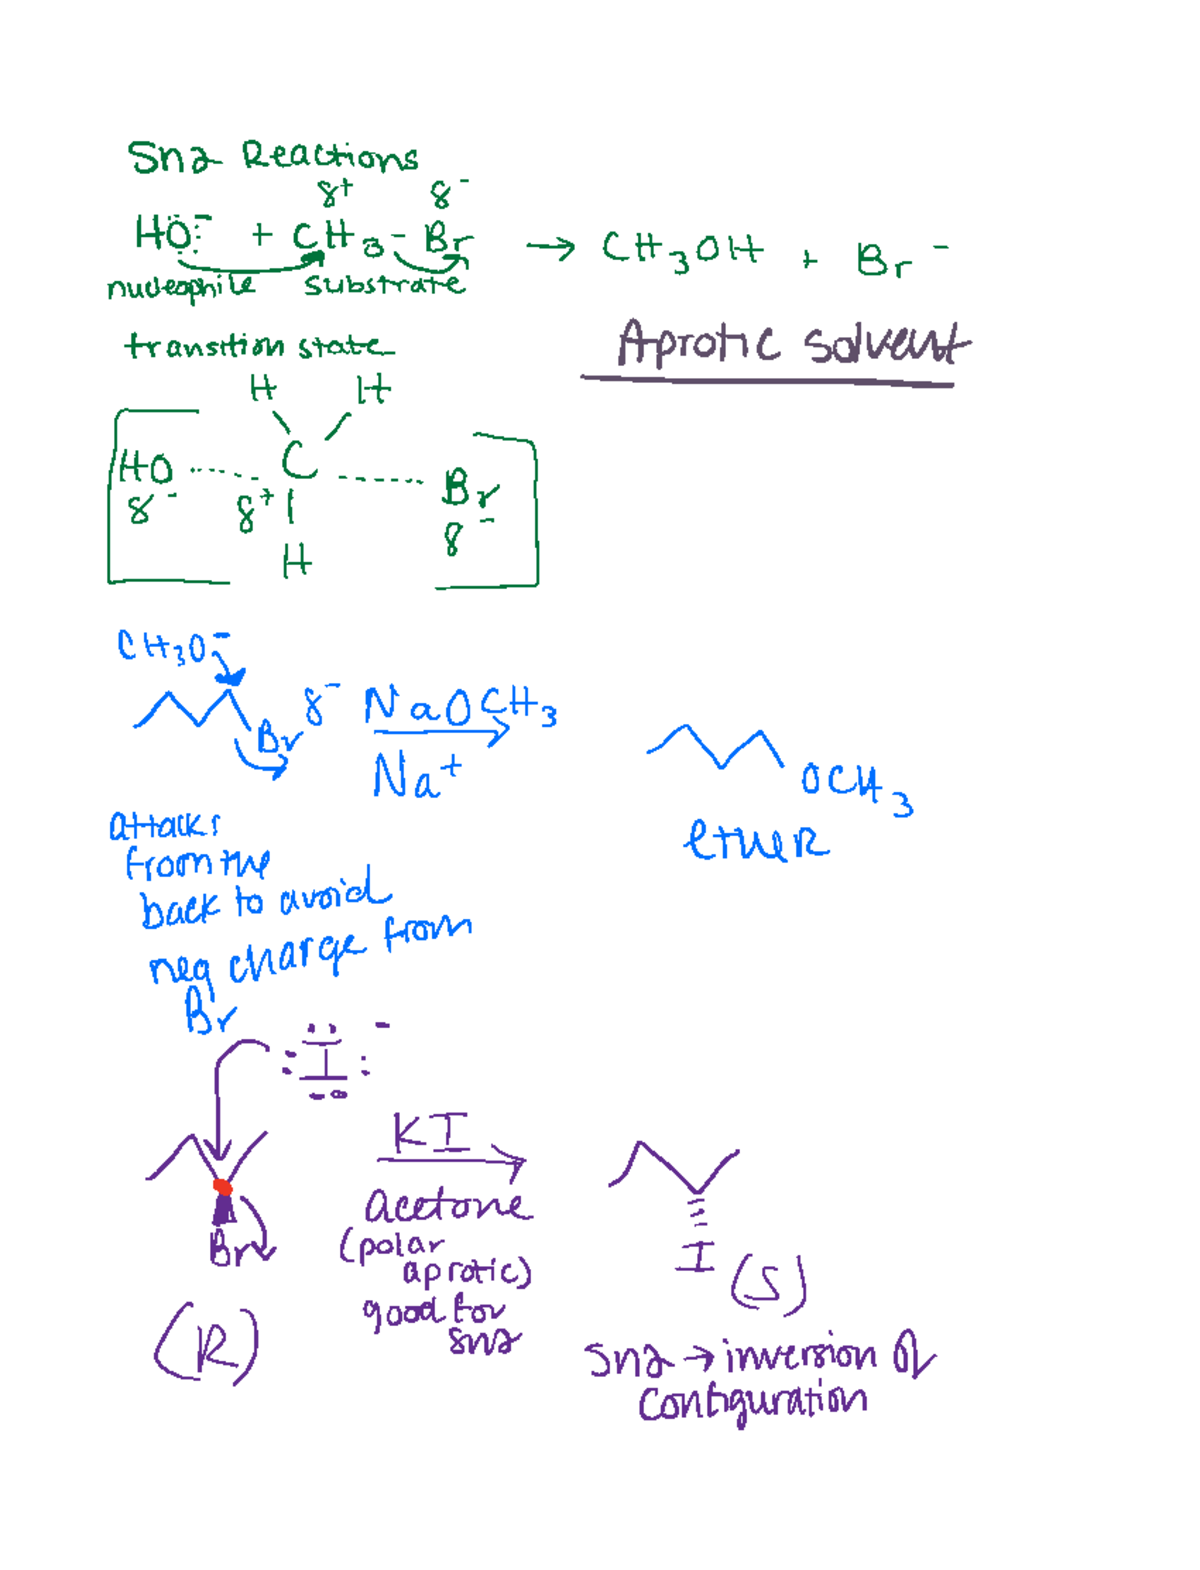 Sn2 Reactions
δ+ δ-
HO:- + CH3-Br → CH3OH + Br-
nucleophile substrate
transition state
Aprotic solvent
H H
HO ..... C ------ Br
δ- δ+ δ-
H
CH3O-
Br δ- NaOCH3
Na+
OCH3
ether
attacks
from the
back to avoid
neg charge from
Br
:I:-
KI
acetone
(polar
aprotic)
good for
sn2
Br
(R)
I
(S)
Sn2 → inversion of
configuration